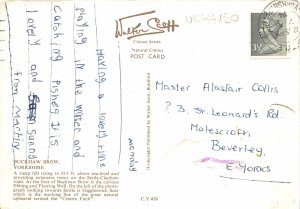 Walter Scott
Colour Series
Natural Colour
POST CARD
UK47150
3½
Monday
Having a lovely time
playing in the water and
catching fishes. It is
lovely and sunny
from Martin
(Copyright) Published by Walter Scott, Bradford
Master Alastair Collis
? 3, St. Leonard's Rd.
Molescroft,
Beverley,
E YORKS
BUCKHAW BROW,
YORKSHIRE.
A steep hill rising to 915 ft. above sea-level and
providing extensive views on the Settle-Clapham
road. At the foot of Buckhaw Brow is the curious
Ebbing and Flowing Well. On the left of the photo-
graph looking towards Settle is Giggleswick Scar
which is the marking line of the great upheaval
termed the "Craven Fault"
C.Y.428